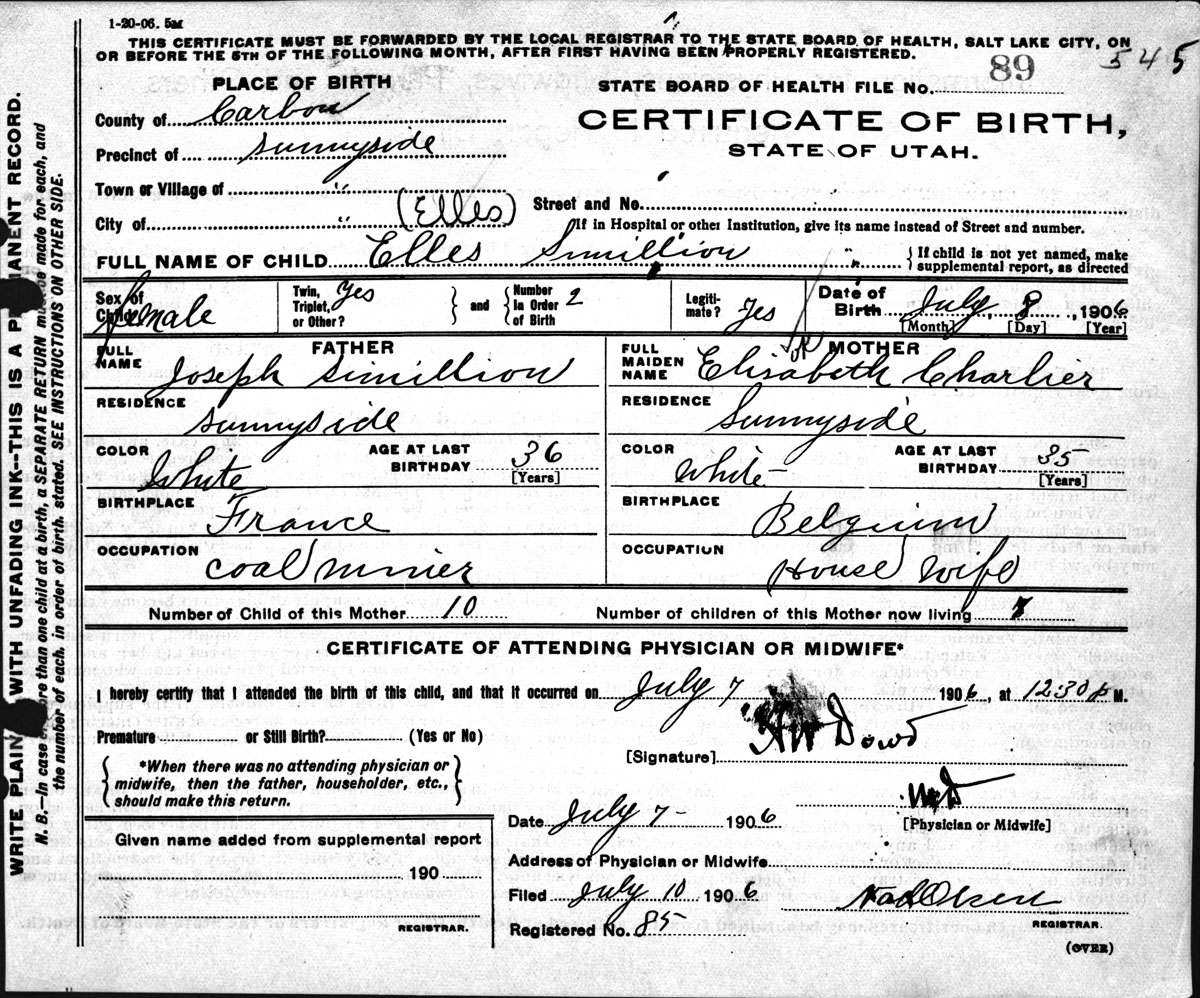 1-20-06. 5M
THIS CERTIFICATE MUST BE FORWARDED BY THE LOCAL REGISTRAR TO THE STATE BOARD OF HEALTH, SALT LAKE CITY, ON
OR BEFORE THE 5TH OF THE FOLLOWING MONTH, AFTER FIRST HAVING BEEN PROPERLY REGISTERED.
545
PLACE OF BIRTH
STATE BOARD OF HEALTH FILE No. 89
County of Carbon
CERTIFICATE OF BIRTH,
Precinct of Sunnyside
STATE OF UTAH.
Town or Village of "
City of " (Elles)
Street and No.
If in Hospital or other Institution, give its name instead of Street and number.
FULL NAME OF CHILD Elles Simillion "
If child is not yet named, make
supplemental report, as directed
Sex of Child female
Twin, Triplet, or Other? Yes and Number in Order of Birth 2
Legitimate? Yes
Date of Birth July 8, 1906
[Month] [Day] [Year]
FATHER
FULL NAME Joseph Simillion
RESIDENCE Sunnyside
COLOR White
AGE AT LAST BIRTHDAY 36
[Years]
BIRTHPLACE France
OCCUPATION coal minier
MOTHER
FULL MAIDEN NAME Elisabeth Charlier
RESIDENCE Sunnyside
COLOR White
AGE AT LAST BIRTHDAY 35
[Years]
BIRTHPLACE Belgium
OCCUPATION House Wife
Number of Child of this Mother 10 Number of children of this Mother now living
CERTIFICATE OF ATTENDING PHYSICIAN OR MIDWIFE*
I hereby certify that I attended the birth of this child, and that it occurred on July 7 1906, at 1230 P M.
Premature or Still Birth? (Yes or No)
[Signature] Dowd
*When there was no attending physician or
midwife, then the father, householder, etc.,
should make this return.
MD
[Physician or Midwife]
Date July 7- 1906
Given name added from supplemental report
190
REGISTRAR.
Address of Physician or Midwife
Filed July 10 1906 Olsen
Registered No. 85
REGISTRAR.
(OVER)
WRITE PLAINLY WITH UNFADING INK--THIS IS A PERMANENT RECORD.
N. B.--In case of more than one child at a birth, a SEPARATE RETURN must be made for each, and
the number of each, in order of birth, stated. SEE INSTRUCTIONS ON OTHER SIDE.